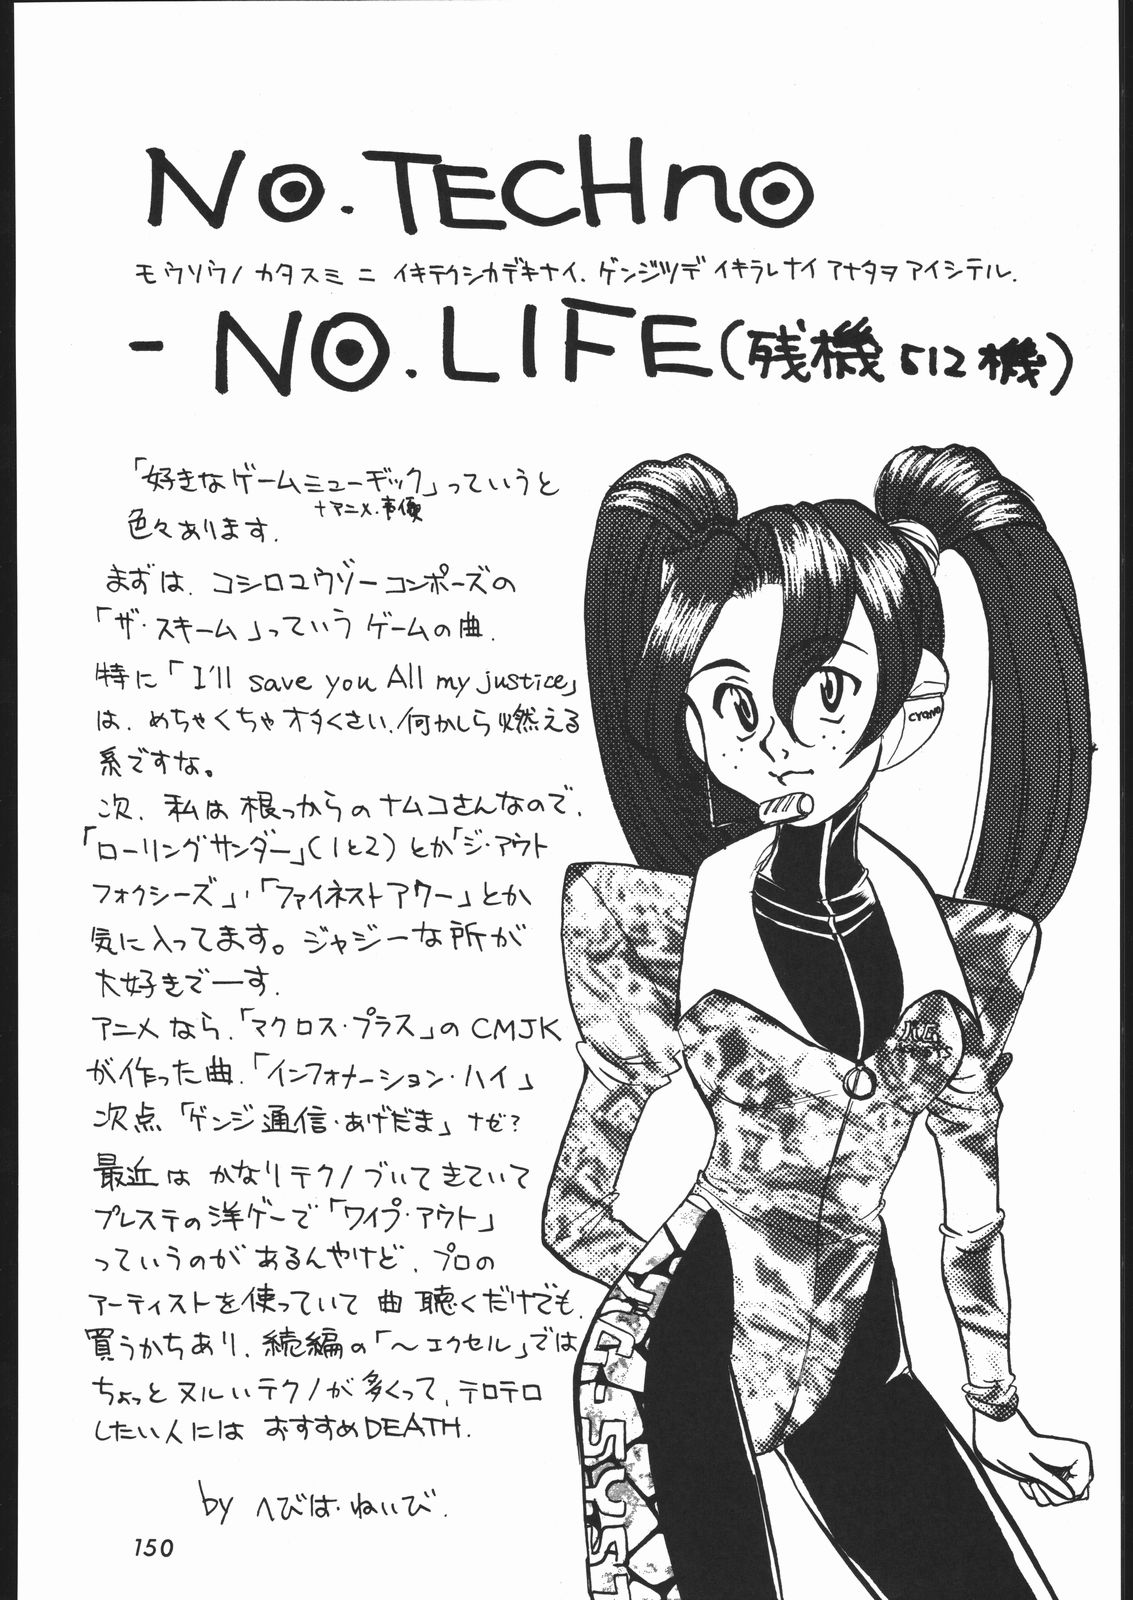 No. TECHno
モウソウノ カタスミ ニ イキテクシカデキナイ. ゲンジツデ イキラレナイ アナタヲ アイシテル.
- NO. LIFE (残機 512 機)
「好きなゲームミュージック」っていうと
+アニメ・声優
色々あります.
まずは、コシロユウゾーコンポーズの
「ザ・スキーム」っていうゲームの曲.
特に「I'll save you All my justice」
は、めちゃくちゃオタくさい、何かしら燃える
系ですな。
次、私は根っからのナムコさんなので、
「ローリングサンダー」(1と2)とか「ジ・アウト
フォクシーズ」、「ファイネストアワー」とか
気に入ってます。ジャジーな所が
大好きでーす.
アニメなら、「マクロス・プラス」のCMJK
が作った曲、「インフォメーション・ハイ」
次点「ゲンジ通信・あげだま」ナゼ?
最近はかなりテクノづいてきていて
プレステの洋ゲーで「ワイプ・アウト」
っていうのがあるんやけど、プロの
アーティストを使っていて曲聴くだけでも、
買うかちあり、続編の「〜エクセル」では
ちょっとヌルいテクノが多くって、テロテロ
したい人にはおすすめDEATH.
by へびは・ねいび.
150
cyano
KG-SYST